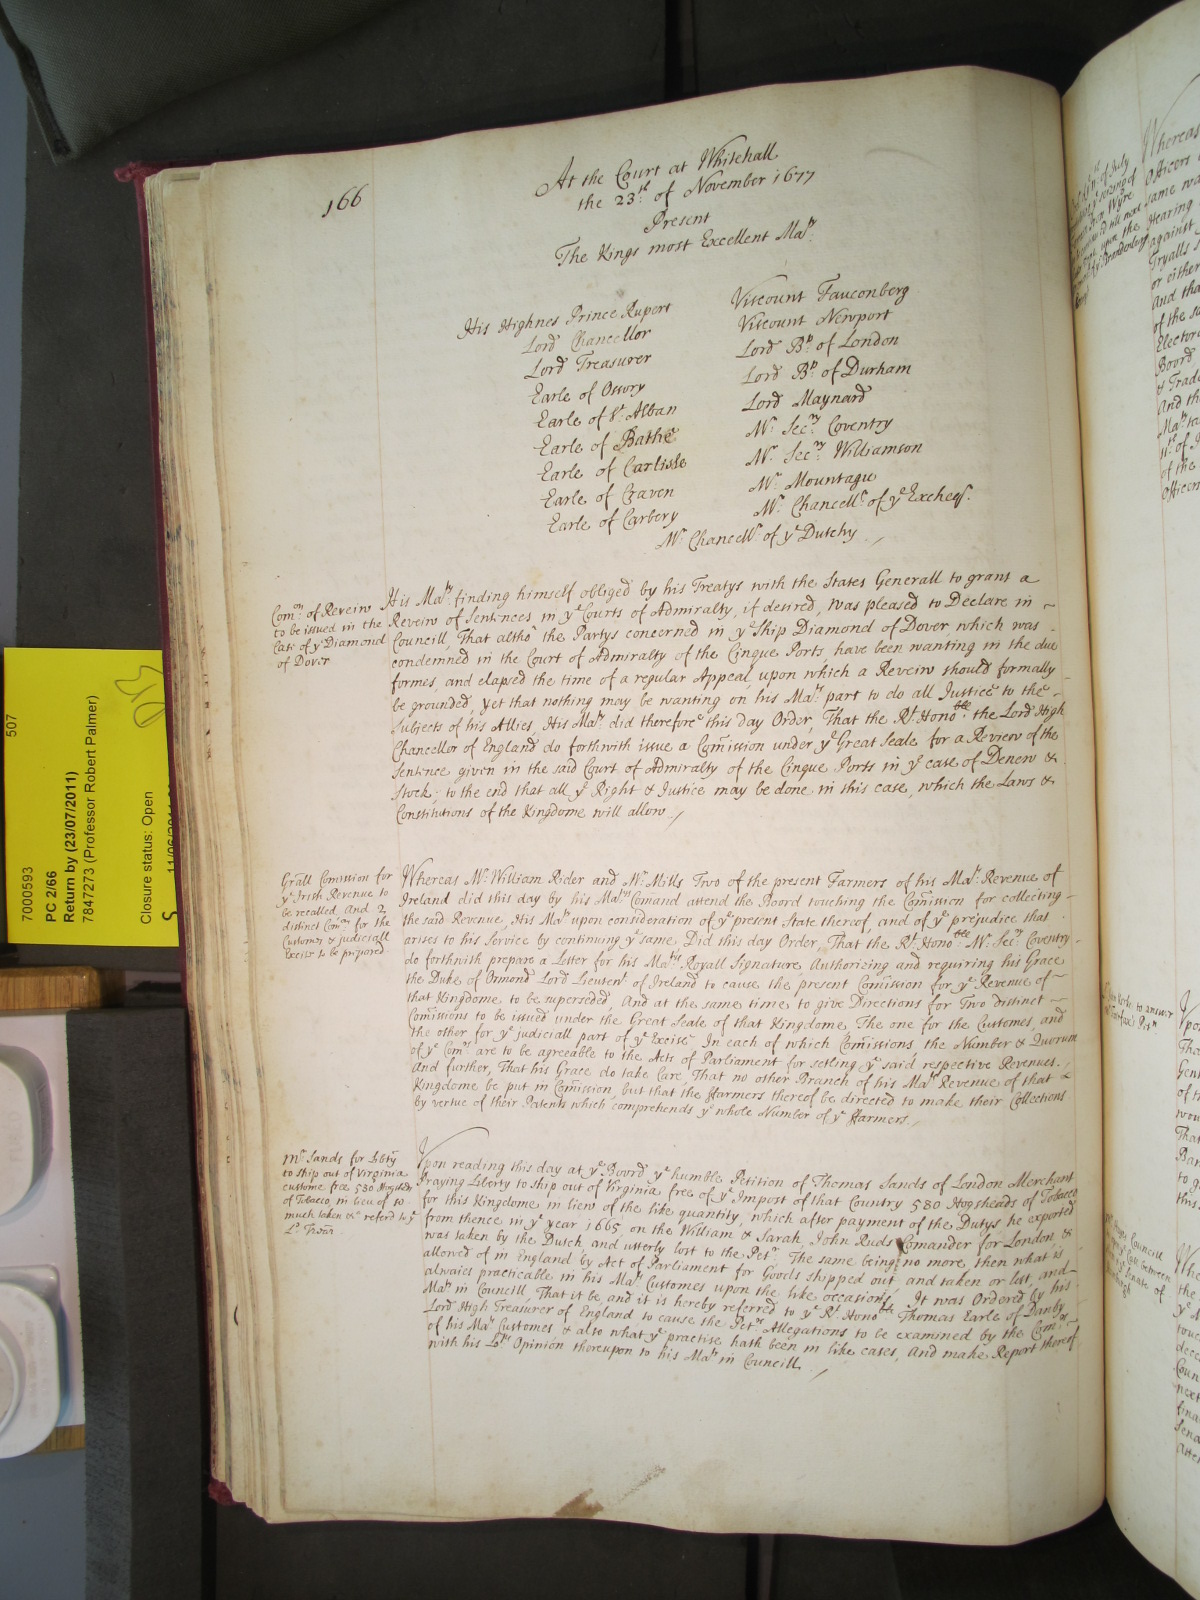 166
At the Court at Whitehall
the 23th of November 1677
Present
The Kings most Excellent Maty
His Highnes Prince Rupert
Lord Chancellor
Lord Treasurer
Earle of Ossory
Earle of St Alban
Earle of Bathe
Earle of Carlisle
Earle of Craven
Earle of Carbery
Viscount Fauconberg
Viscount Newport
Lord Bp of London
Lord Bp of Durham
Lord Maynard
Mr Secry Coventry
Mr Secry Williamson
Mr Mountagu
Mr Chancellr of ye Excheqr.
Mr Chancellr of ye Dutchy
Comon of Reveiw
to be issued in the
Case of ye Diamond
of Dover
His Maty finding himself obliged by his Treatys with the States Generall to grant a
Reveiw of Sentences in ye Courts of Admiralty, if desired, was pleased to Declare in
Councill, That altho' the Partys concerned in ye Ship Diamond of Dover which was
condemned in the Court of Admiralty of the Cinque Ports have been wanting in the due
formes, and elapsed the time of a regular Appeal upon which a Reveiw should formally
be grounded, yet that nothing may be wanting on his Mats part to do all Justice to the
Subjects of his Allies, His Maty did therefore this day Order, That the Rt Honoble the Lord High
Chancellor of England do forthwith issue a Comission under ye Great Seale for a Review of the
Sentence given in the said Court of Admiralty of the Cinque Ports in ye case of Denew &
Stock; to the end that all ye Right & Justice may be done in this case, which the Laws &
Constitutions of the Kingdome will allow
Grall Comission for
ye Irish Revenue to
be recalled, And 2
distinct Comns for the
Customes & judiciall
Excise to be prepared
Whereas Mr William Rider and Mr Mills Two of the present Farmers of his Mats Revenue of
Ireland did this day by his Mats Comand attend the Board touching the Comission for collecting
the said Revenue, His Maty upon consideration of ye present State thereof, and of ye prejudice that
arises to his Service by continuing ye same, Did this day Order, That the Rt Honoble Mr Secry Coventry
do forthwith prepare a Letter for his Mats Royall Signature Authorizing and requiring his Grace
the Duke of Ormond Lord Lieutent of Ireland to cause the present Comission for ye Revenue of
that Kingdome to be superseded, And at the same time to give Directions for Two distinct
Comissions to be issued under the Great Seale of that Kingdome, The one for the Customes, and
the other for ye judiciall part of ye Excise In each of which Comissions the Number & Quorum
of ye Comrs are to be agreeable to the Acts of Parliament for setling ye said respective Revenues.
And further, That his Grace do take Care, That no other Branch of his Mats Revenue of that
Kingdome be put in Comission, but that the ffarmers thereof be directed to make their Collections
by vertue of their Patents which comprehends ye whole Number of ye ffarmers
Mr Sands for Libty
to ship out of Virginia
custome free 580 Hogsheds
of Tobacco, in lieu of so
much taken &c referd to ye
Ld Treār
Upon reading this day at ye Board ye humble Petition of Thomas Sands of London Merchant
Praying Liberty to ship out of Virginia free of ye Impost of that Country 580 Hogsheads of Tobacco
for this Kingdome in liew of the like quantity, which after payment of the Dutys he exported
from thence in ye year 1665 on the William & Sarah, John Ruds Comander for London &
was taken by the Dutch and utterly lost to the Petr The same being no more, then what is
allowed of in England by Act of Parliament for Goods shipped out and taken or lost, and
alwaies practicable in his Mats Customes upon the like occasions, It was Ordered by his
Maty in Councill, That it be and it is hereby referred to ye Rt Honoble Thomas Earle of Danby
Lord High Treasurer of England to cause the Petrs Allegations to be examined by the Comrs
of his Mats Customes & also what ye practise hath been in like cases, And make Report thereof
with his Lops Opinion thereupon to his Maty in Councill
507
7000593
PC 2/66
Return by (23/07/2011)
7847273 (Professor Robert Palmer)
Closure status: Open